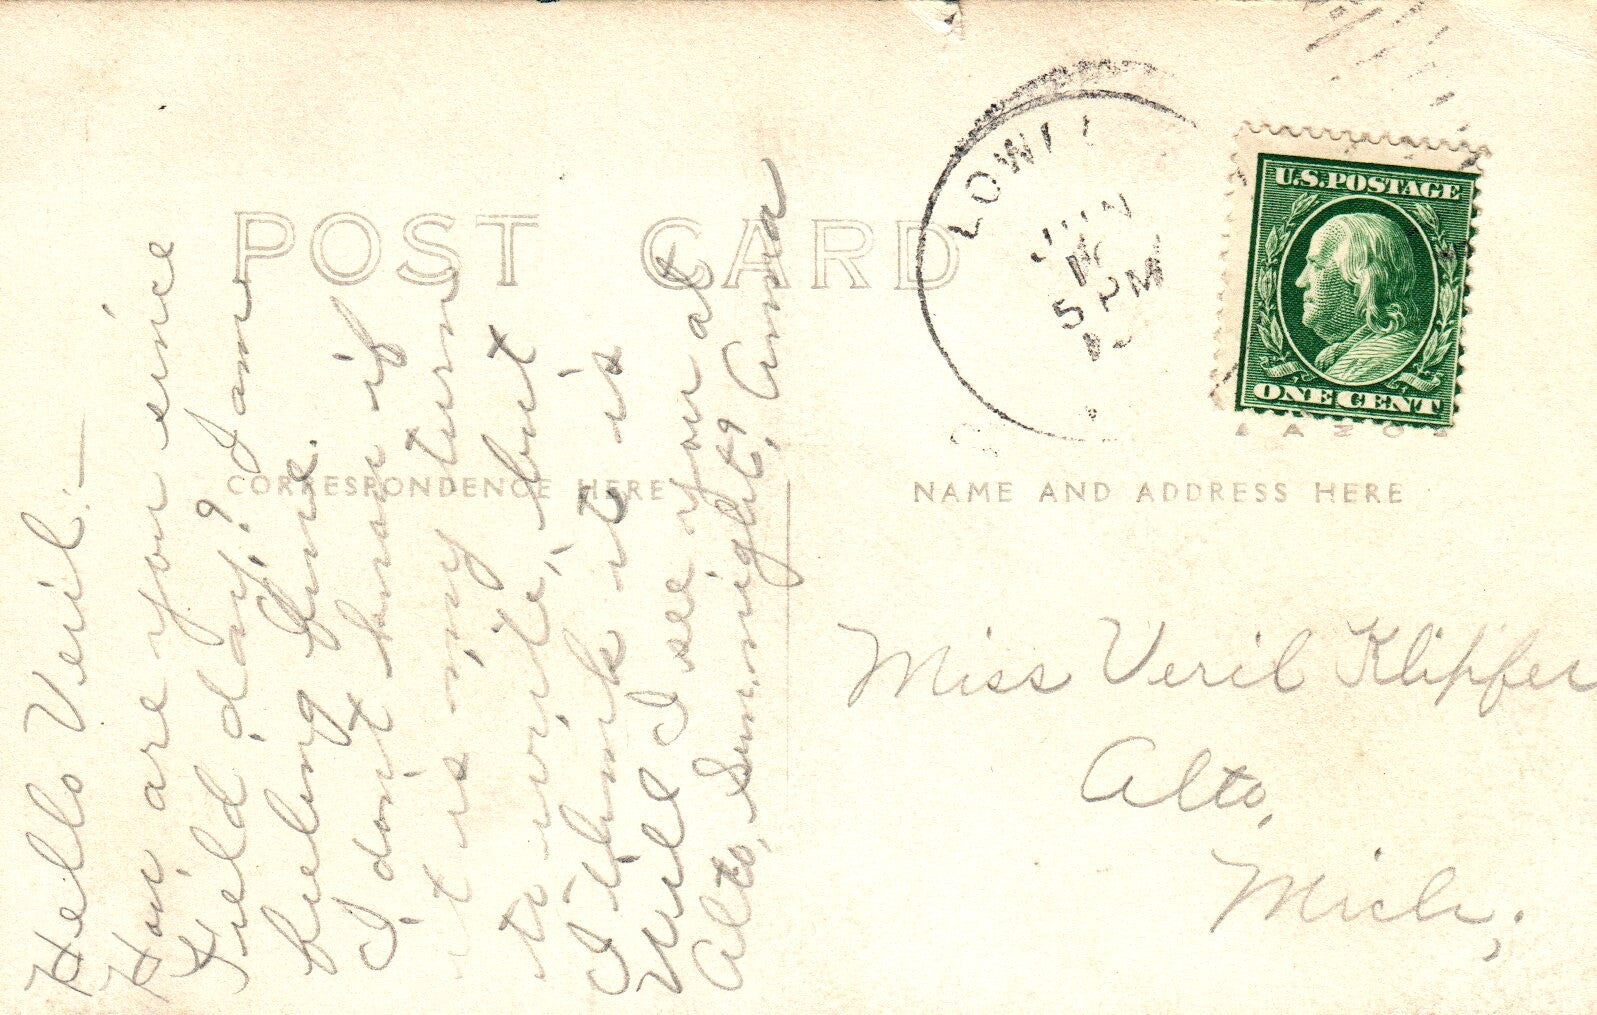 POST CARD
LOWELL
JUN
5 PM
U.S. POSTAGE
ONE CENT
AZO
CORRESPONDENCE HERE
NAME AND ADDRESS HERE
Hello Veril:—
How are you since
Field day? I am
feeling fine.
I don't know if
it is my turn
to write, but
I think it is
Will I see you at
Alto, Sun. night? Anna
Miss Veril Klipfer
Alto,
Mich,;